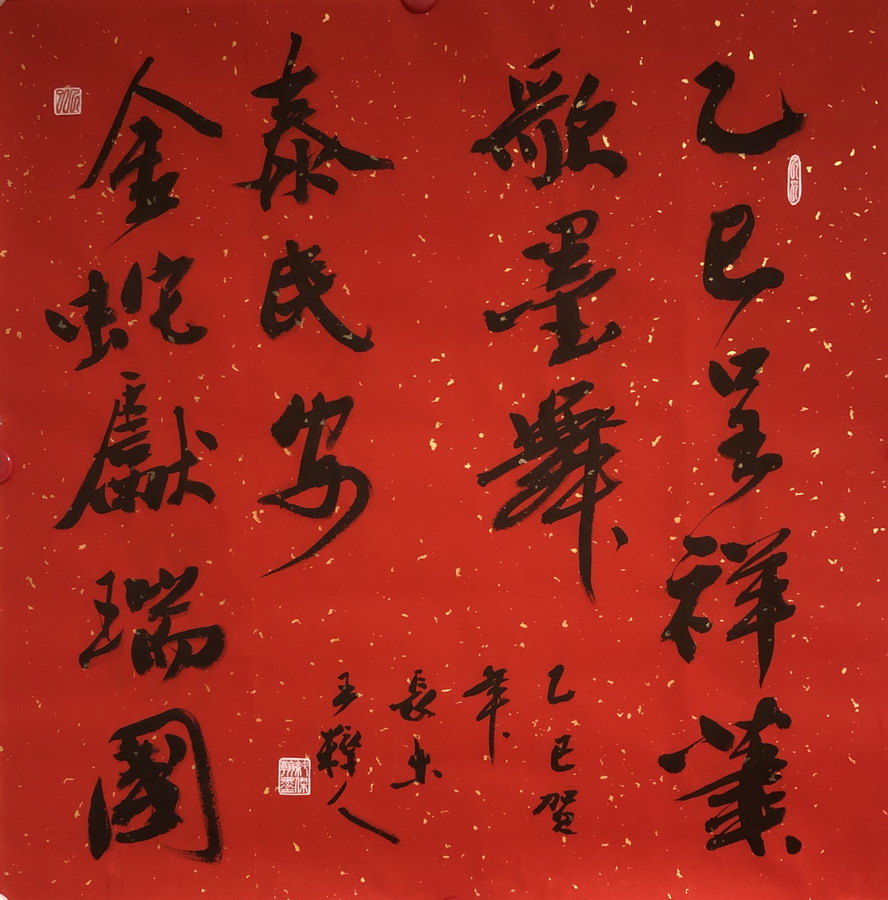 乙巳呈祥筆
歌墨舞
金蛇獻瑞國
泰民安
乙巳贺
年
長乐
王
人